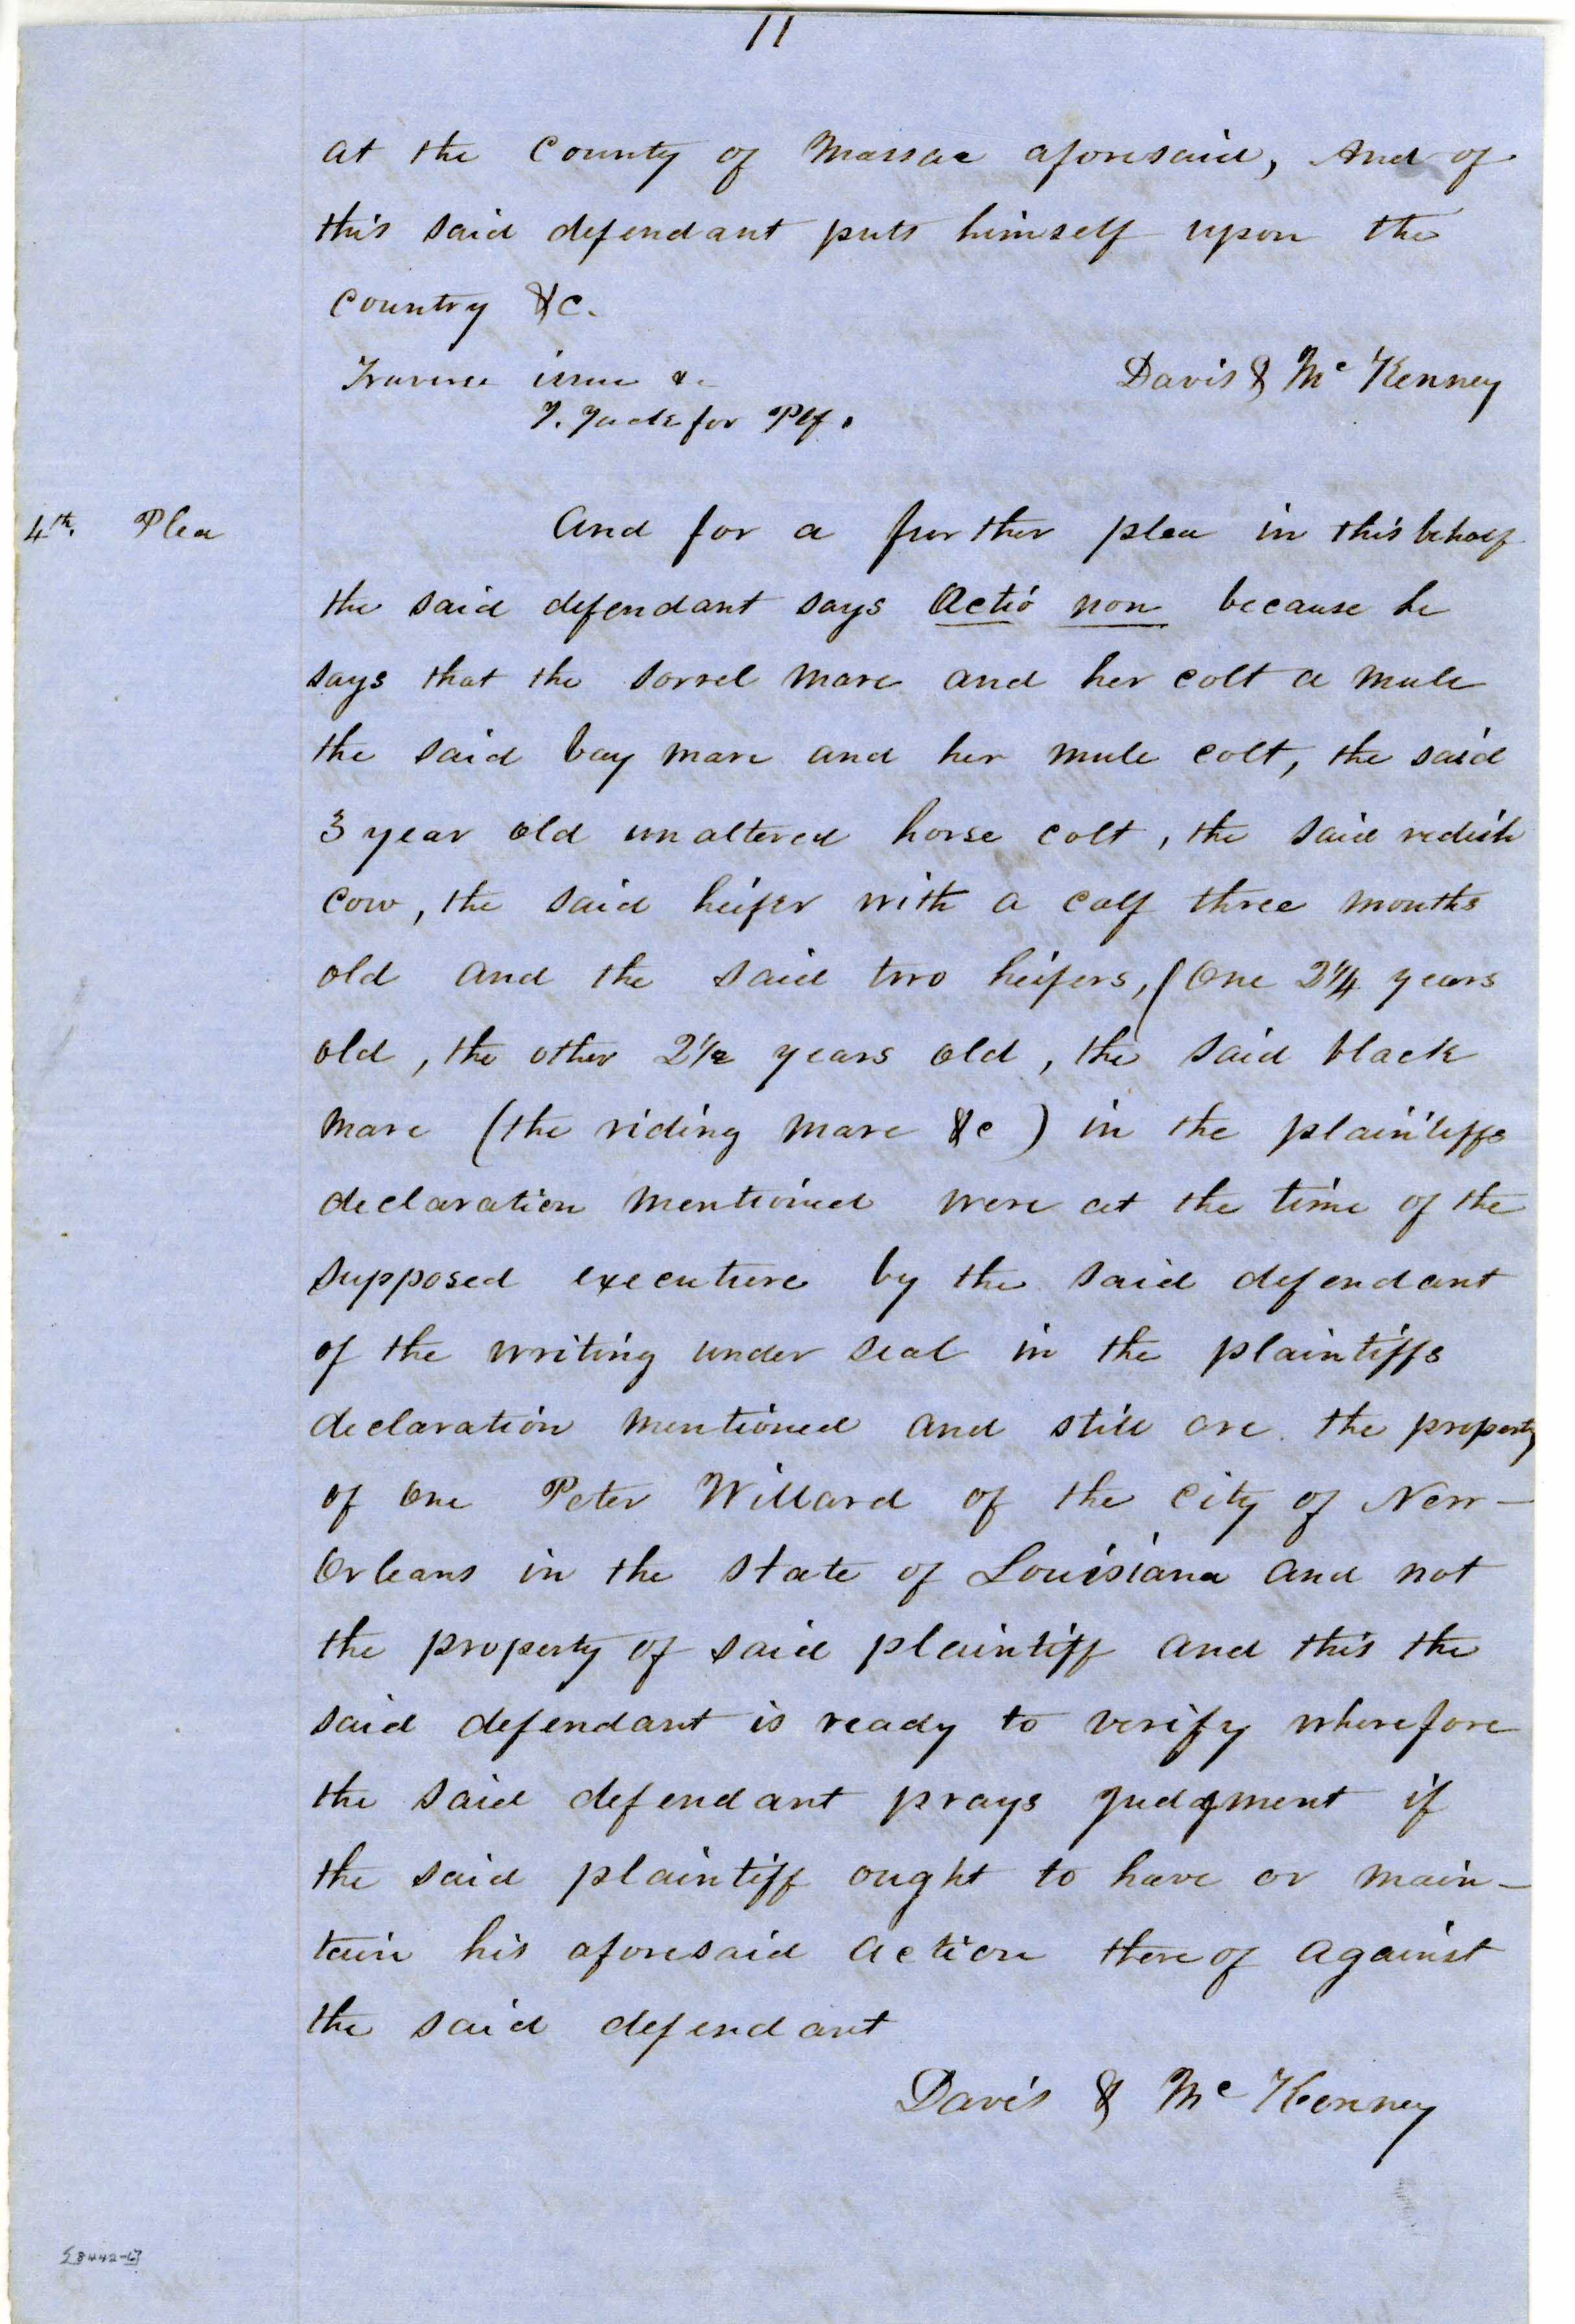 11
at the County of Massac aforesaid, And of
this said defendant puts himself upon the
Country &c.
Traverse issue &c
Davis & Mc Kenney
Y. Jack for Plf.
4th. Plea
And for a further plea in this behalf
the said defendant says Actio non because he
says that the sorrel mare and her colt a mule
the said bay mare and her mule colt, the said
3 year old unaltered horse colt, the said redish
cow, the said heifer with a calf three months
old and the said two heifers, (One 2 1/4 years
old, the other 2 1/2 years old, the said black
mare (the riding mare &c) in the plaintiffs
declaration mentioned were at the time of the
supposed executure by the said defendant
of the writing under seal in the plaintiffs
declaration mentioned and still are the property
of one Peter Willard of the City of New-
Orleans in the State of Louisiana and not
the property of said plaintiff and this the
said defendant is ready to verify wherefore
the said defendant prays judgment if
the said plaintiff ought to have or main-
tain his aforesaid action thereof against
the said defendant
Davis & Mc Kenney
[8442-6]